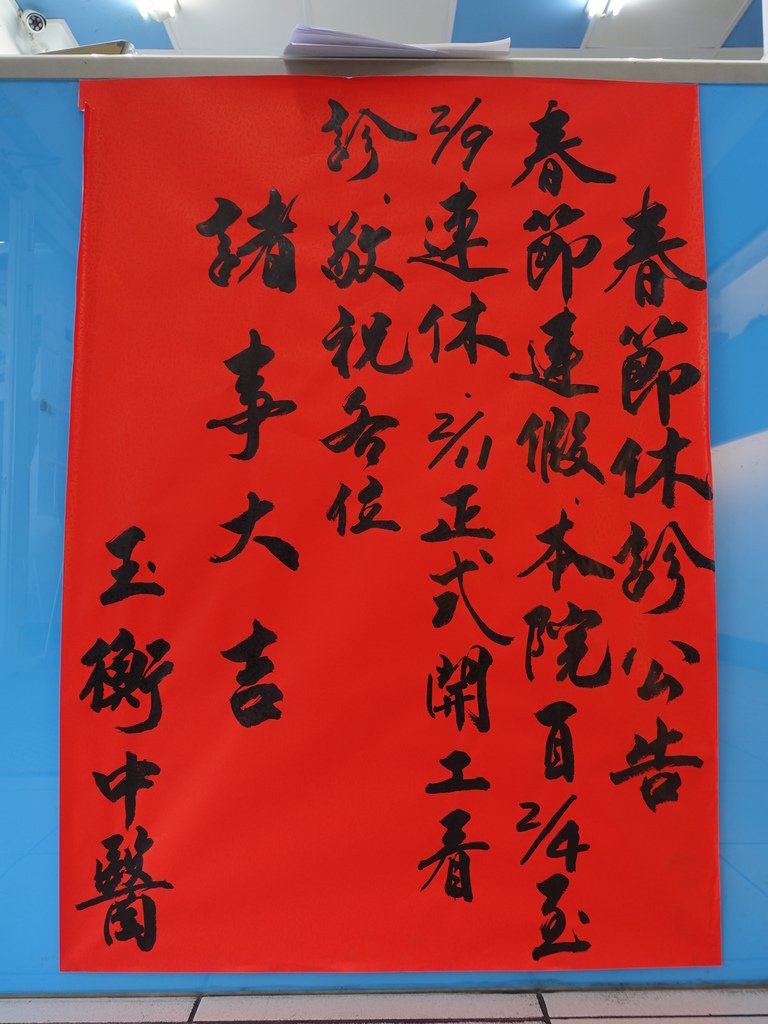 春節休診公告
春節連假.本院自2/4至
2/9連休.2/11正式開工看
診.敬祝各位
諸事大吉
玉衡中醫